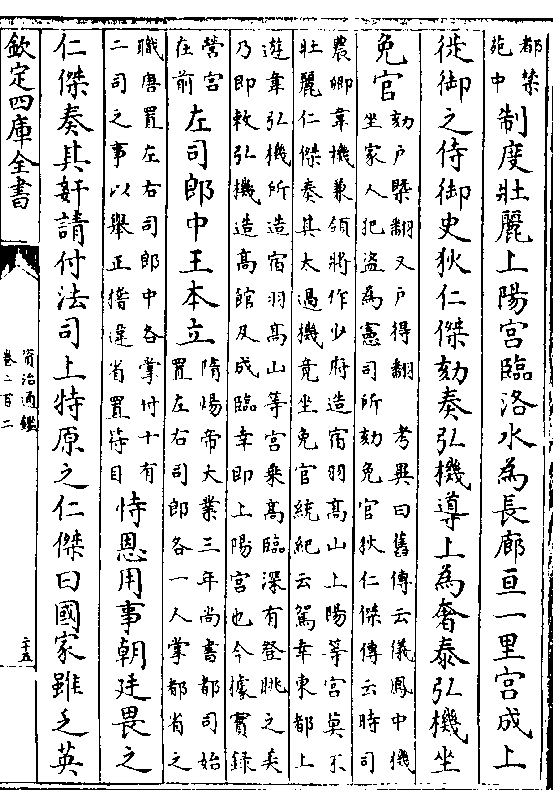 都禁
苑中
制度壯麗上陽宫臨洛水為長廊亘一里宫成上
徙御之侍御史狄仁傑劾奏弘機導上為奢泰弘機坐
免官
劾户槩翻又户得翻　考異曰舊傳云儀鳳中機
坐家人犯盜為憲司所劾免官狄仁傑傳云時司
農卿韋機兼領將作少府造宿羽髙山上陽等宫莫不
壯麗仁傑奏其太過機竟坐免官統紀云駕幸東都上
遊韋弘機所造宿羽髙山等宫乗髙臨深有登眺之美
乃即敕弘機造髙館及成臨幸即上陽宫也今據實録
營宫
在前
左司郎中王本立
隋煬帝大業三年尚書都司始
置左右司郎各一人掌都省之
職唐置左右司郎中各掌付十有
二司之事以舉正稽違省置符目
恃恩用事朝廷畏之
仁傑奏其奸請付法司上特原之仁傑曰國家雖乏英
欽定四庫全書
資治通鑑
卷二百二
二十五